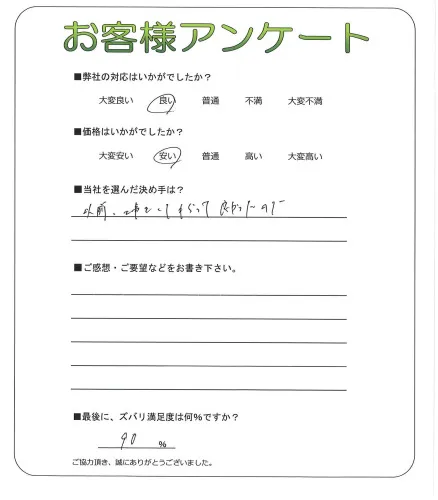 お客様アンケート
■弊社の対応はいかがでしたか？
大変良い 良い 普通 不満 大変不満
■価格はいかがでしたか？
大変安い 安い 普通 高い 大変高い
■当社を選んだ決め手は？
以前、 してもらって良かったので
■ご感想・ご要望などをお書き下さい。
■最後に、ズバリ満足度は何％ですか？
90 ％
ご協力頂き、誠にありがとうございました。